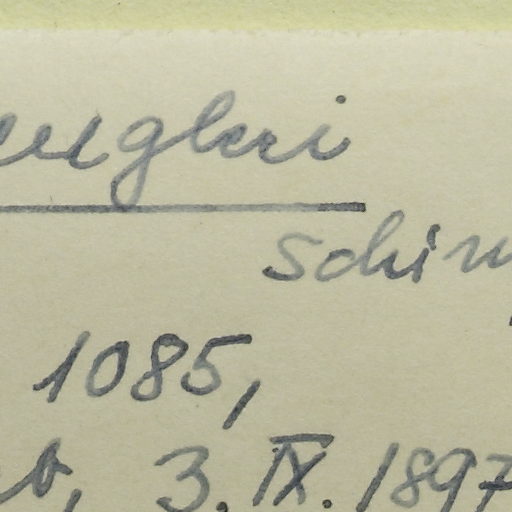 eugleri
Schim
1085,
b, 3. IX. 1897